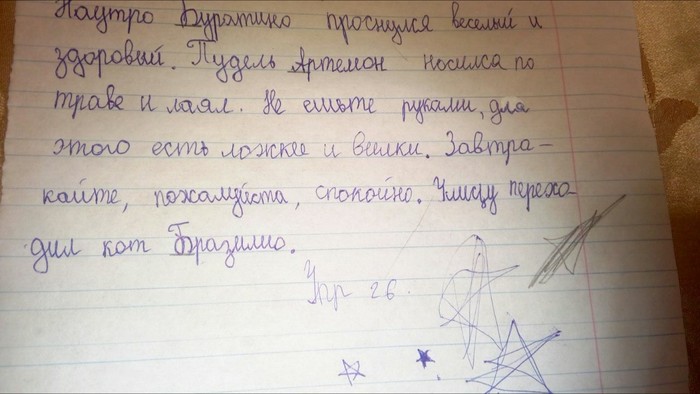 Наутро Буратино проснулся веселый и
здоровый. Пудель Артемон носился по
траве и лаял. Не ешьте руками, для
этого есть ложкее и вилки. Завтра-
кайте, пожалуйста, спокойно. Улицу перехо-
дил кот Бразилио.
Упр 26.